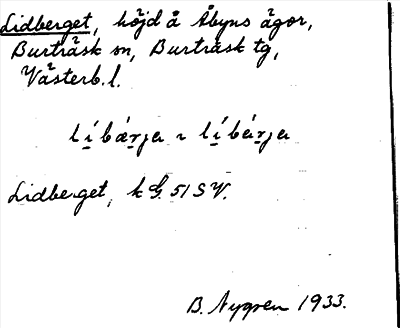 Lidberget, höjd å Åbyns ägor,
Burträsk sn, Burträsk tg,
Västerb. l.
líbærja ı líbárja
Lidberget, k G. 51 S V.
B. Nygren 1933.